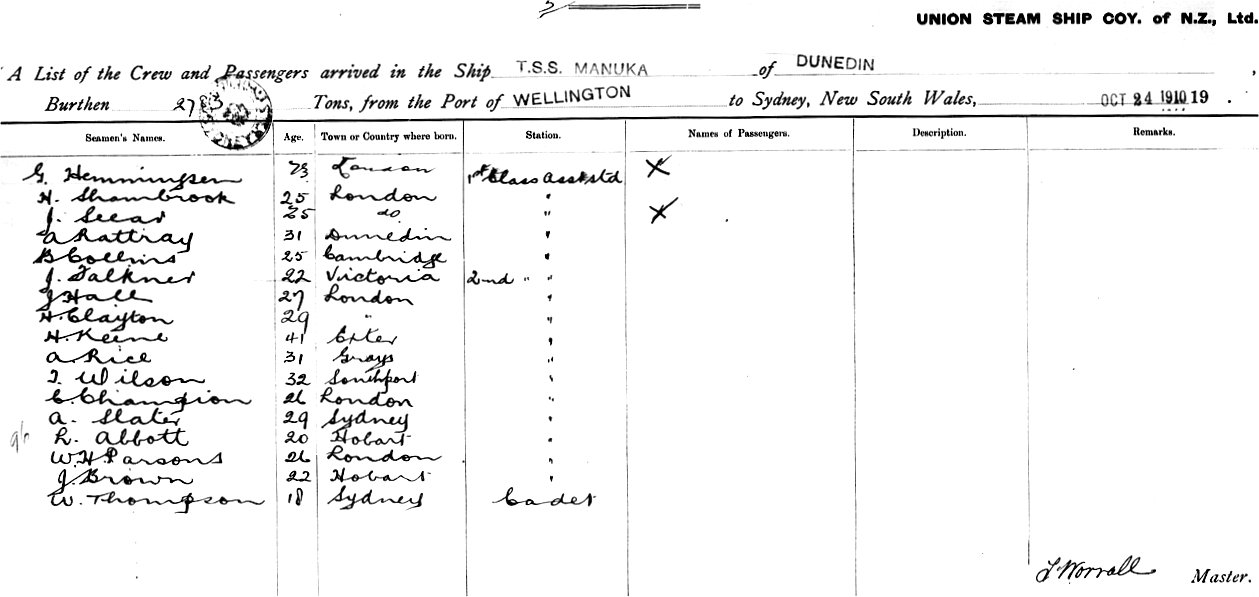 UNION STEAM SHIP COY. of N.Z., Ltd.
A List of the Crew and Passengers arrived in the Ship T.S.S. MANUKA of DUNEDIN,
Burthen Tons, from the Port of WELLINGTON to Sydney, New South Wales, OCT 24 1910 19 .
Seamen's Names. Age. Town or Country where born. Station. Names of Passengers. Description. Remarks.
G. Hemmingsen 23 London 1st Class Asst Std X
H. Shambrook 25 London "
J. Seear 25 do "  X
A Rattray 31 Dunedin "
B Collins 25 Cambridge "
J. Falkner 22 Victoria 2nd " "
J Hall 27 London "
H. Clayton 29 " "
H. Keene 41 Exter "
A. Rice 31 Grays "
T. Wilson 32 Southport "
C. Champion 26 London "
A. Slater 29 Sydney "
L. Abbott 20 Hobart "
W. H Parsons 26 London "
J. Brown 22 Hobart "
W. Thompson 18 Sydney Cadet
J Worrall Master.